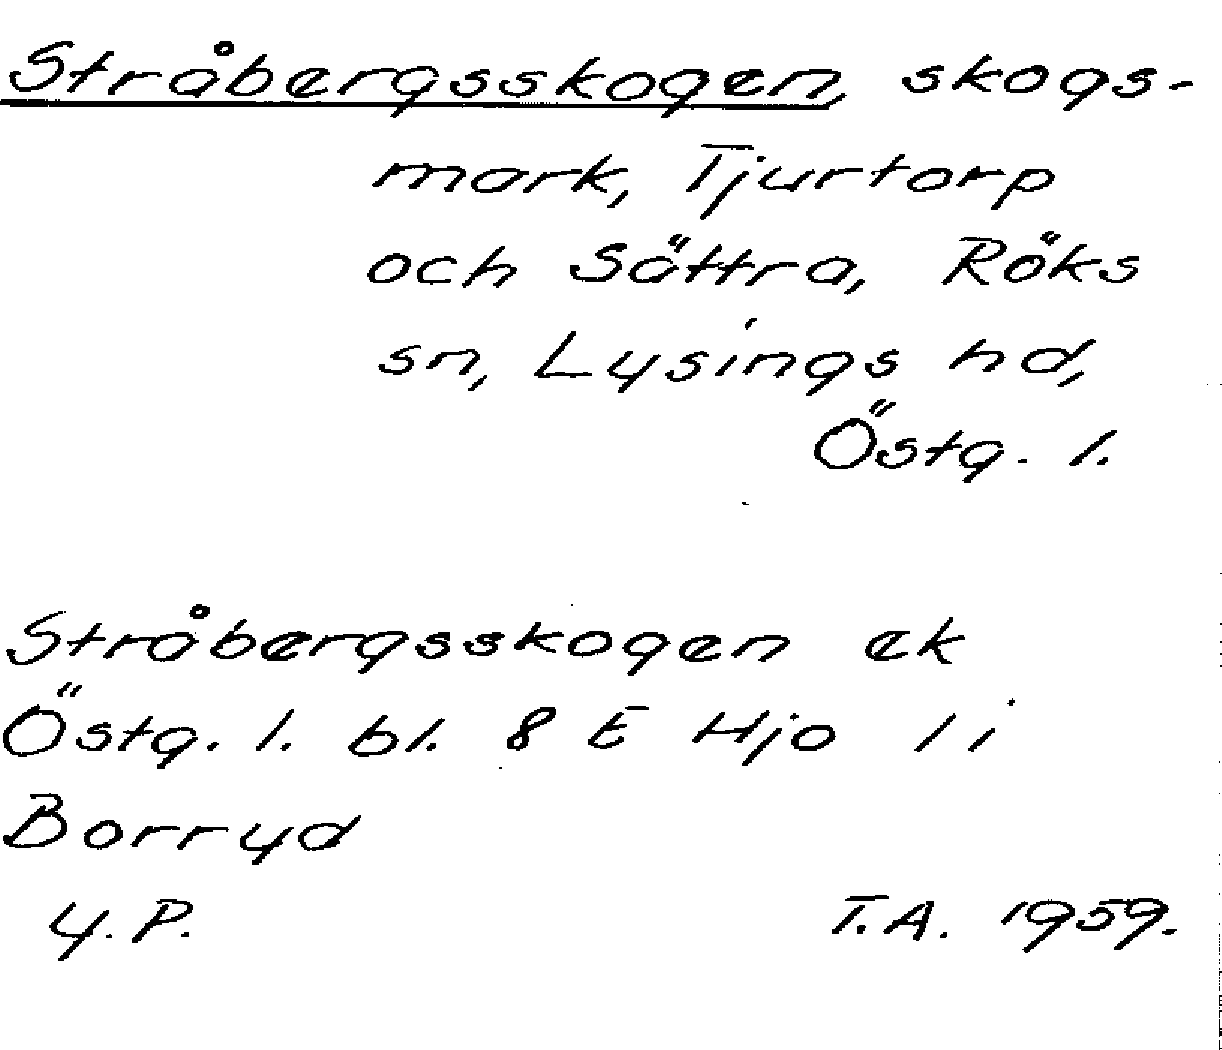 Stråbergsskogen, skogs-
mark, Tjurtorp
och Sättra, Röks
sn, Lysings hd,
Östg. l.
Stråbergsskogen ek
Östg. l. bl. 8 E Hjo 1 i
Borryd
Y. P. T. A. 1959.